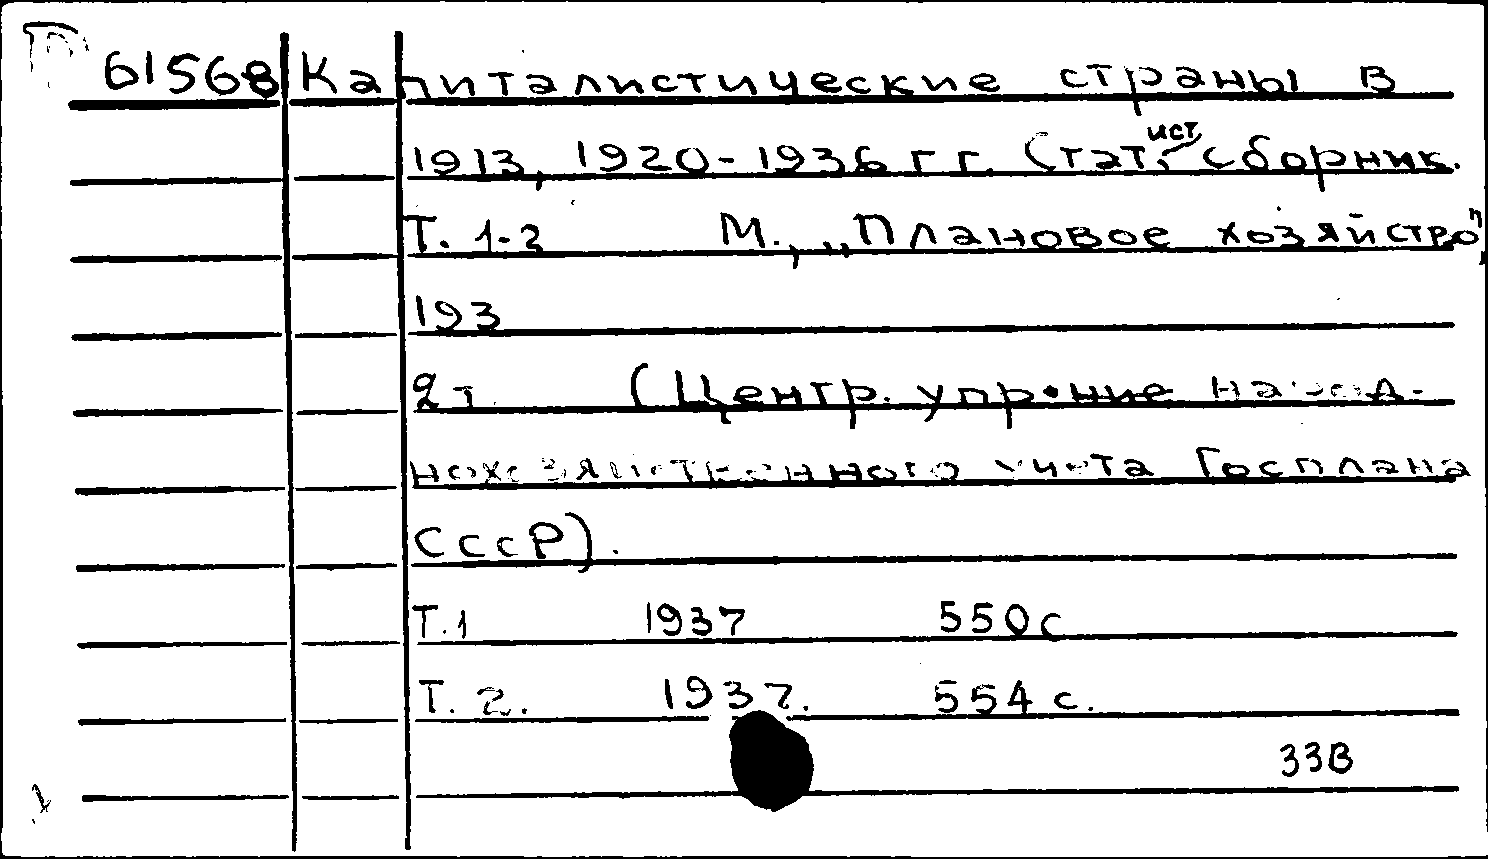 61568 Капиталистические страны в
1913, 1920-1936 гг. Стат. ист. сборник.
Т. 1-2 М., „Плановое хозяйстро",
193
2 т. (Центр. упр-ние народ-
нохозяйственного учета Госплана
СССР).
Т.1 1937 550с
Т. 2. 1937. 554 с.
33В